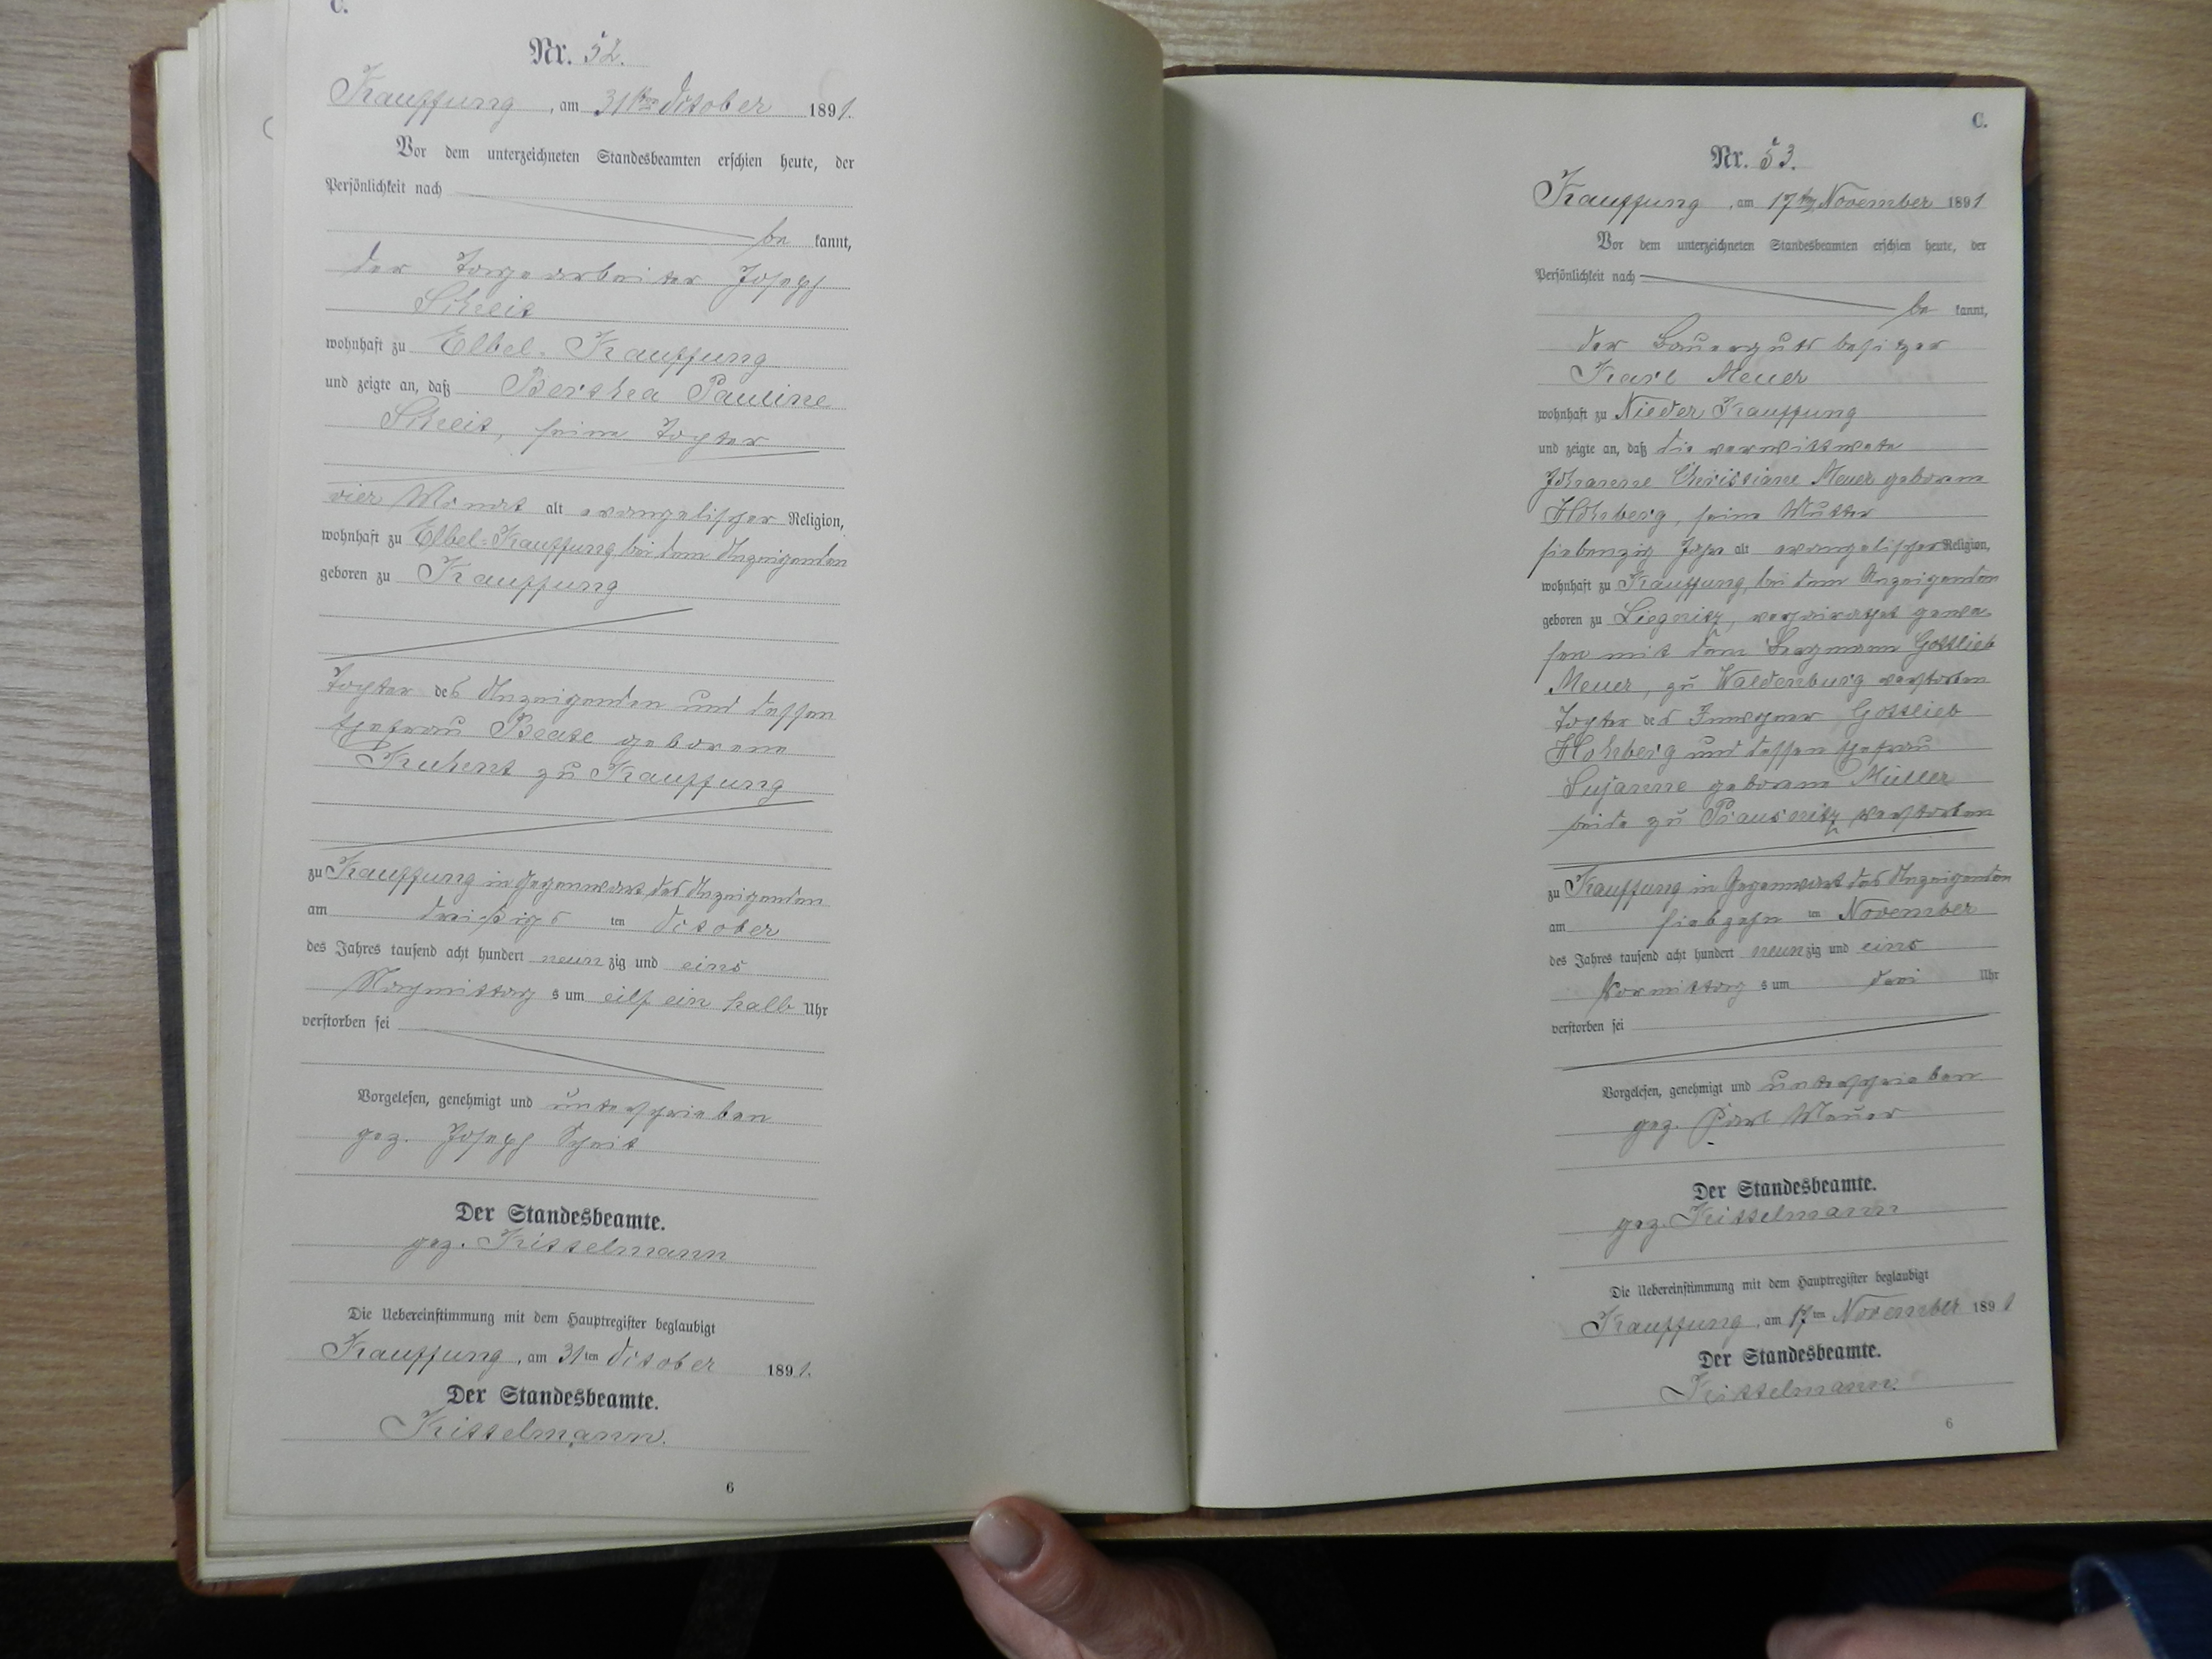 C.
Nr. 52.
Kauffung, am 31ten October 1891.
Vor dem unterzeichneten Standesbeamten erschien heute, der
Persönlichkeit nach
be kannt,
der Tagearbeiter Joseph
wohnhaft zu Elbel-Kauffung
und zeigte an, daß Bertha Pauline
seine Tochter
vier Monat alt evangelischer Religion,
wohnhaft zu Elbel-Kauffung, bei dem Anzeigenden
geboren zu Kauffung
Tochter des Anzeigenden und dessen
Ehefrau Beate geborene
Kuhnt zu Kauffung
zu Kauffung in Gegenwart des Anzeigenden
am dreißigs ten October
des Jahres tausend acht hundert neun zig und eins
Nachmittag s um eilf ein halb Uhr
verstorben sei
Vorgelesen, genehmigt und unterschrieben
gez. Joseph Scheit
Der Standesbeamte.
gez. Kittelmann
Die Uebereinstimmung mit dem Hauptregister beglaubigt
Kauffung, am 31ten October 1891.
Der Standesbeamte.
Kittelmann.
6
C.
Nr. 53.
Kauffung, am 17ten November 1891
Vor dem unterzeichneten Standesbeamten erschien heute, der
Persönlichkeit nach
be kannt,
der Bauergutsbesitzer
Karl Meuer
wohnhaft zu Nieder Kauffung
und zeigte an, daß die verwittwete
Johanne Christiane Meuer geborene
Hohberg, seine Mutter
siebenzig Jahr alt evangelischer Religion,
wohnhaft zu Kauffung, bei dem Anzeigenden
geboren zu Liegnitz, verheirathet gewe-
sen mit dem Bergmann Gottlieb
Meuer, zu Waldenburg verstorben
Tochter des Inwohner Gottlieb
Hohberg und dessen Ehefrau
Susanne geborene Müller
beide zu Prausnitz verstorben
zu Kauffung in Gegenwart des Anzeigenden
am siebzehn ten November
des Jahres tausend acht hundert neunzig und eins
Vormittag s um drei Uhr
verstorben sei
Vorgelesen, genehmigt und unterschrieben
gez. Karl Meuer
Der Standesbeamte.
gez. Kittelmann
Die Uebereinstimmung mit dem Hauptregister beglaubigt
Kauffung, am 17ten November 1891
Der Standesbeamte.
Kittelmann.
6